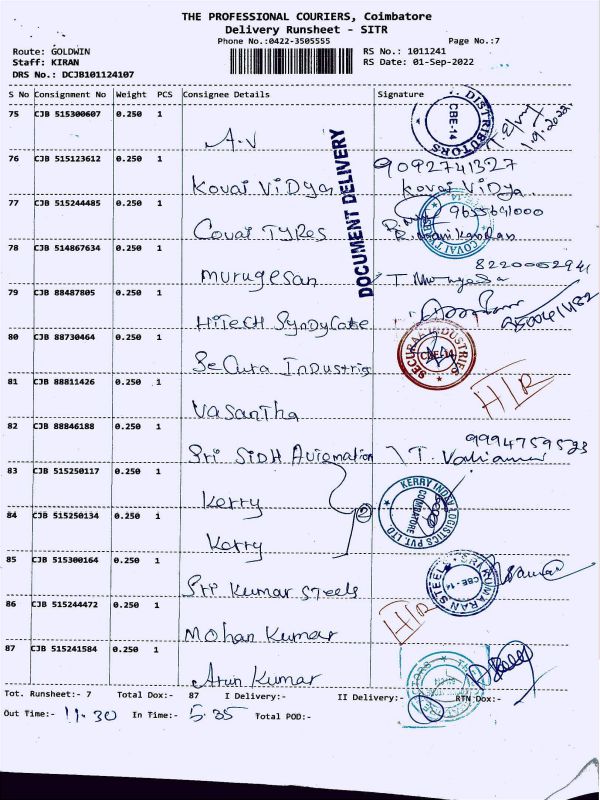 THE PROFESSIONAL COURIERS, Coimbatore
Delivery Runsheet - SITR
Phone No.:0422-3505555 Page No.:7
Route: GOLDWIN RS No.: 1011241
Staff: KIRAN RS Date: 01-Sep-2022
DRS No.: DCJB101124107
S No Consignment No Weight PCS Consignee Details Signature
75 CJB 515300607 0.250 1 A.V
DISTRIBUTORS CBE-14
1.9.2022
76 CJB 515123612 0.250 1 Kovai Vidya 9092741327
Kovai Vidya
DOCUMENT DELIVERY
77 CJB 515244485 0.250 1 Covai TYRes 9655641000
R. Manikandan
COVAI TYRES
78 CJB 514867634 0.250 1 murugesan 8220052941
79 CJB 88487805 0.250 1 HiTECH Syndycate
80 CJB 88730464 0.250 1 SeCura Industris
SECURA INDUSTRIES CBE-14
81 CJB 88811426 0.250 1 Vasantha H/R
82 CJB 88846188 0.250 1 Sri SIDH Automation 9994759523
83 CJB 515250117 0.250 1 Kerry
KERRY INDEV LOGISTICS PVT LTD COIMBATORE
84 CJB 515250134 0.250 1 Kerry 2
85 CJB 515300164 0.250 1 Sri Kumar Steels
SRI KUMARAN STEEL CBE-14
86 CJB 515244472 0.250 1 Mohan Kumar H/R
87 CJB 515241584 0.250 1 Arun Kumar
Tot. Runsheet:- 7 Total Dox:- 87 I Delivery:- II Delivery:- RTN Dox:-
Out Time:- 11.30 In Time:- 5.35 Total POD:-